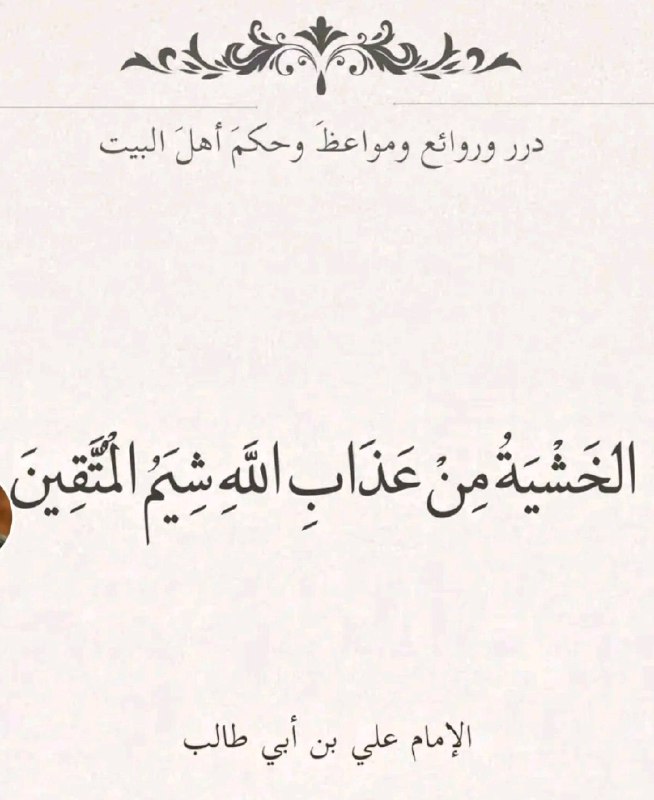 درر وروائع ومواعظَ وحكمَ أهلَ البيت
الخَشْيَةُ مِنْ عَذَابِ اللَّهِ شِيَمُ الْمُتَّقِينَ
الإمام علي بن أبي طالب